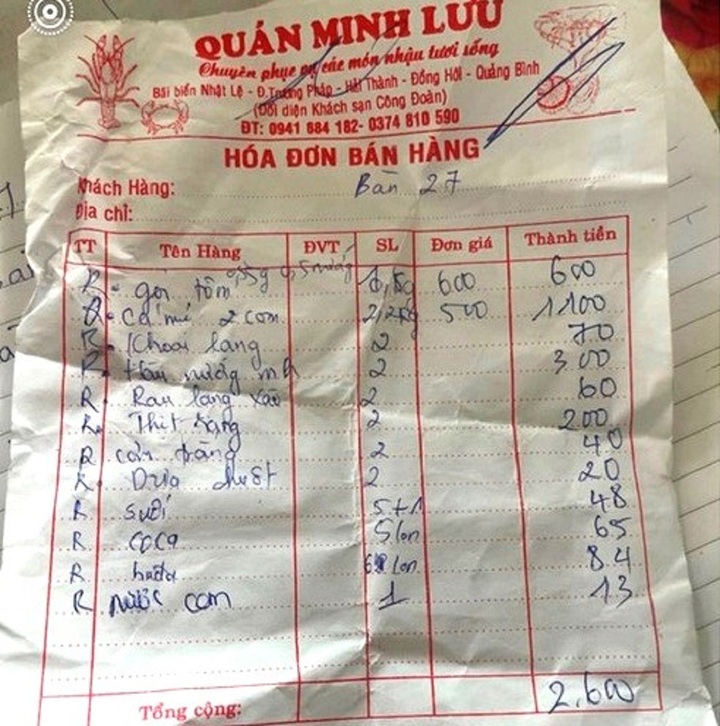 QUÁN MINH LƯU
Chuyên phục vụ các món nhậu tươi sống
Bãi biển Nhật Lệ - Đ.Trương Pháp - Hải Thành - Đồng Hới - Quảng Bình
(Đối diện Khách sạn Công Đoàn)
ĐT: 0941 684 182- 0374 810 590
HÓA ĐƠN BÁN HÀNG
Khách Hàng: Bàn 27
Địa chỉ:
TT Tên Hàng ĐVT SL Đơn giá Thành tiền
R gỏi tôm 600 600
cá mú 2 con 2,2kg 500 1100
R Khoai lang 2 70
R Hàu nướng mh 2 300
R Rau lang xào 2 60
R Thịt rang 2 200
R cơm trắng 2 40
R Dưa chuột 2 20
R suối 5+1 48
R coca 5lon 65
R huda lon 84
R nước cam 1 13
Tổng cộng: 2,600